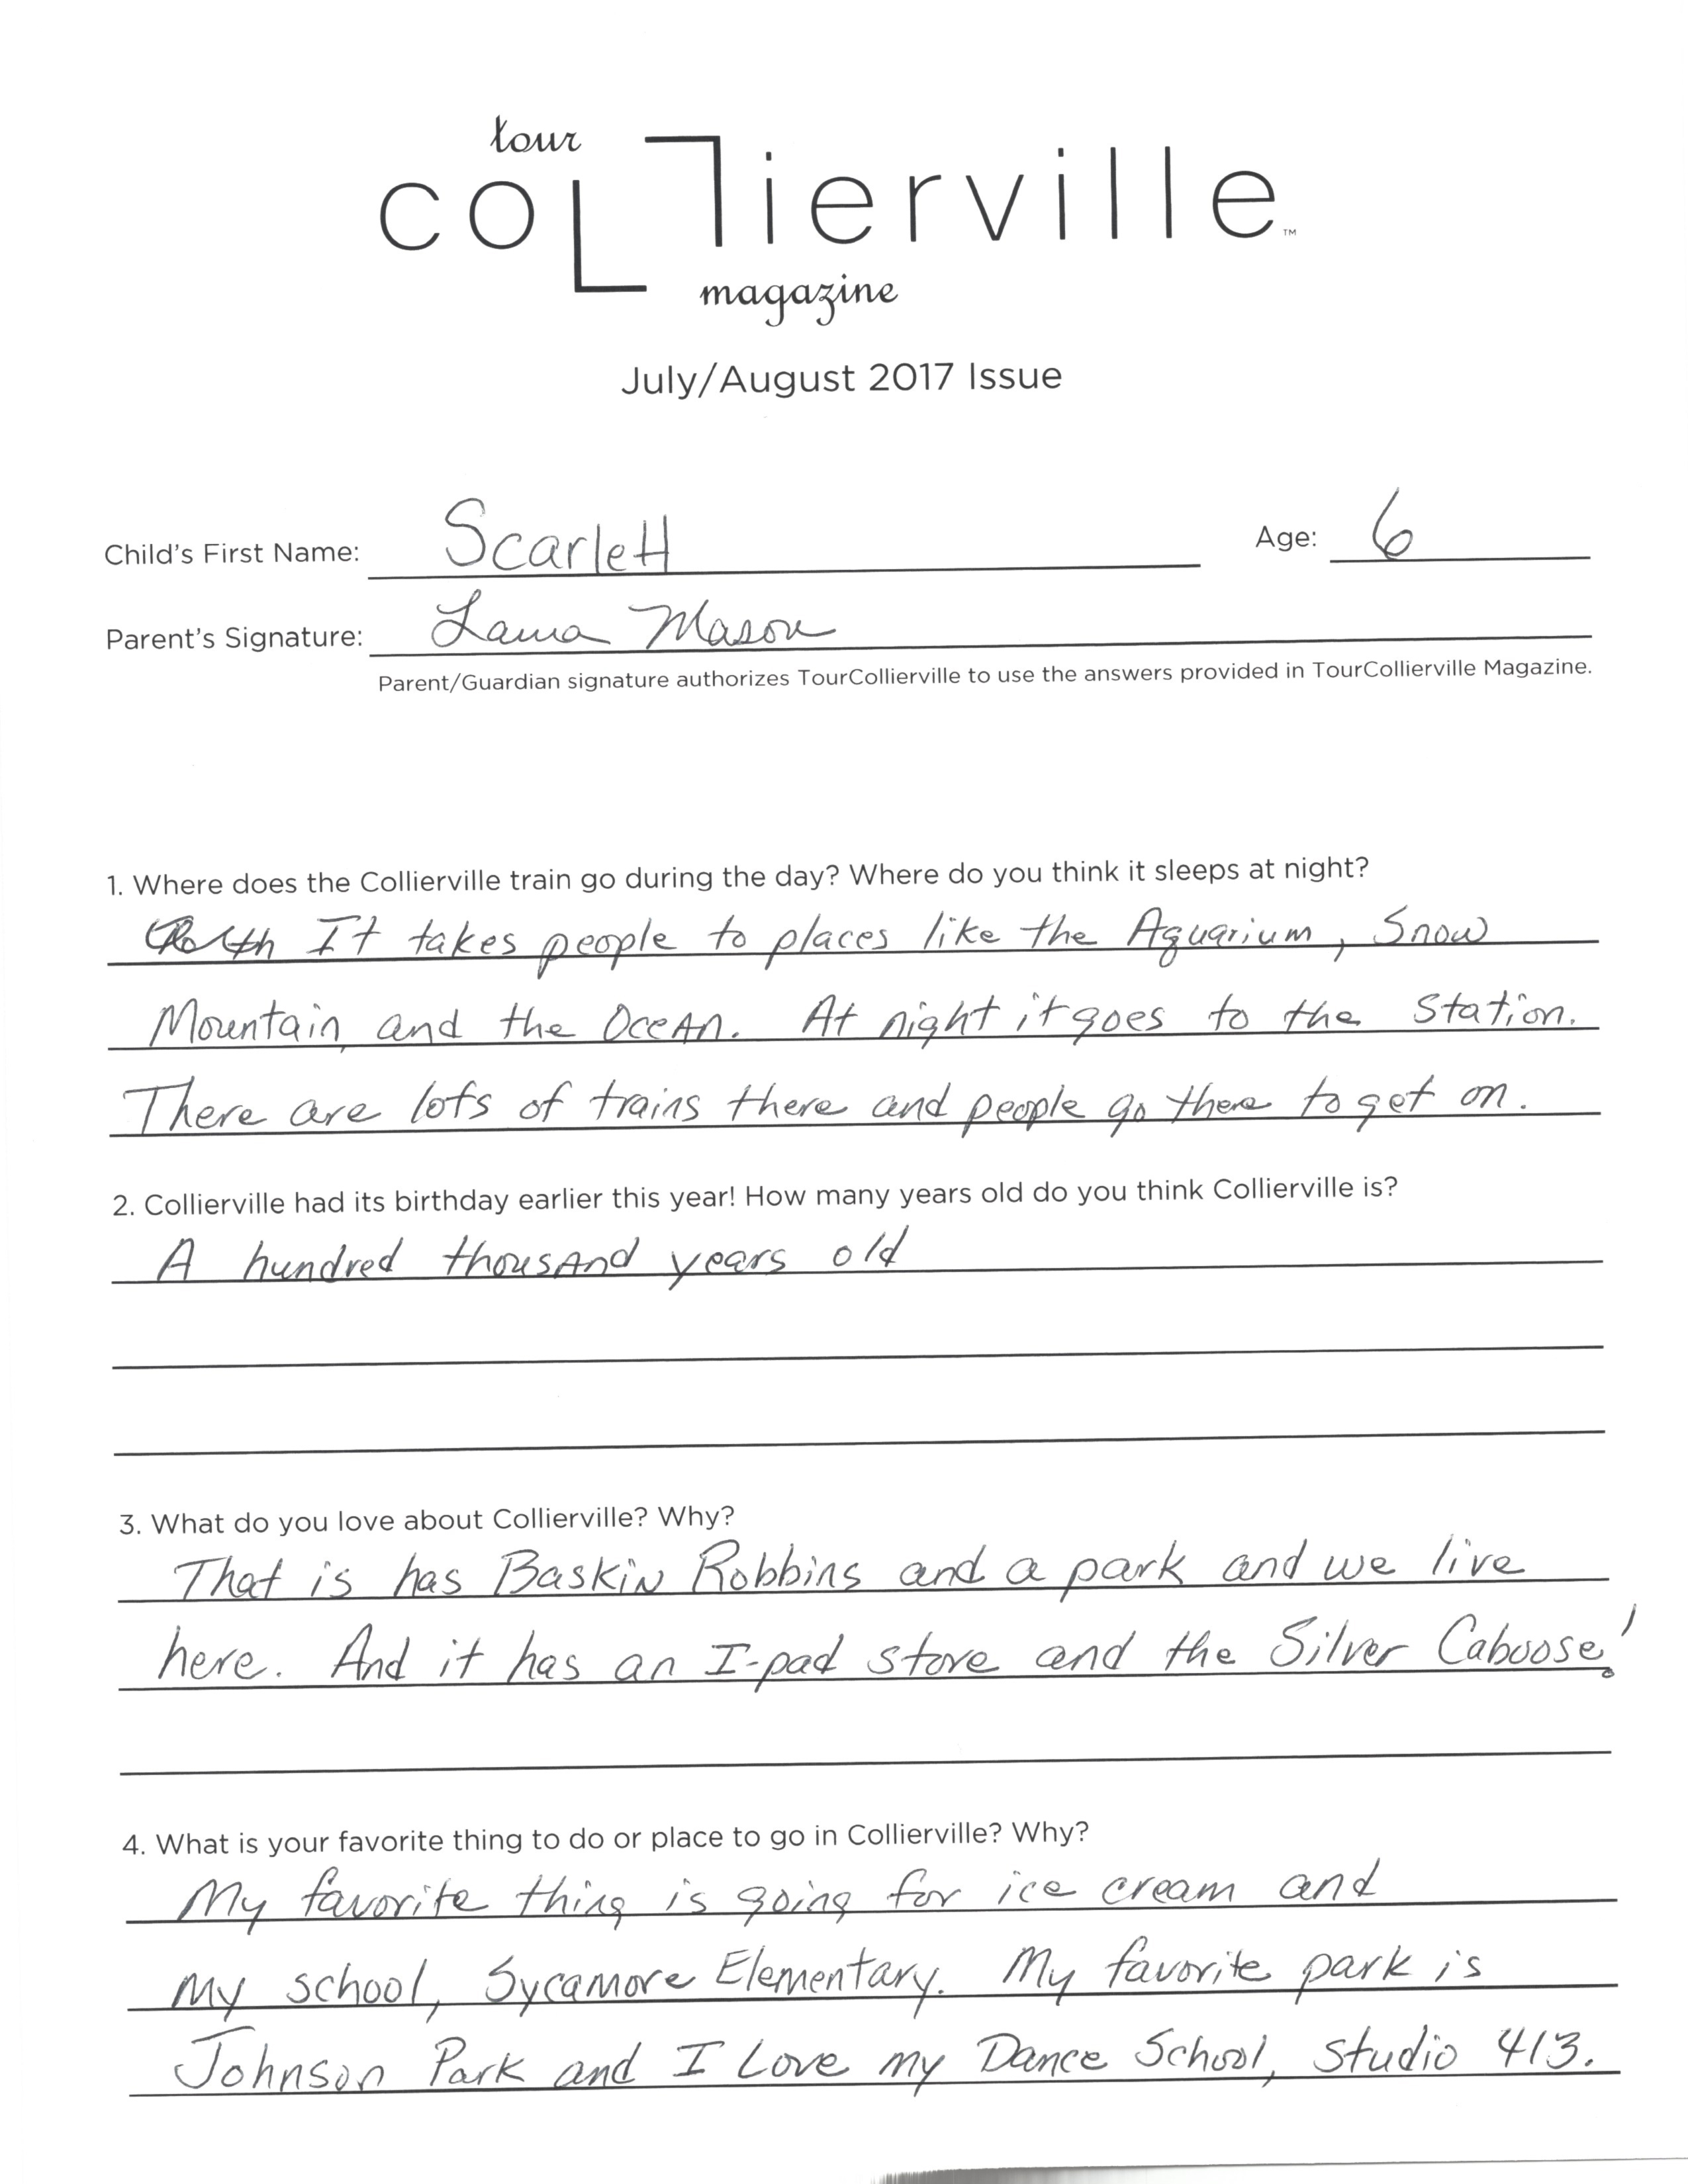 tour
collierville™
magazine
July/August 2017 Issue
Child's First Name: Scarlett Age: 6
Parent's Signature: Laura Mason
Parent/Guardian signature authorizes TourCollierville to use the answers provided in TourCollierville Magazine.
1. Where does the Collierville train go during the day? Where do you think it sleeps at night?
It takes people to places like the Aquarium, Snow
Mountain and the Ocean. At night it goes to the station.
There are lots of trains there and people go there to get on.
2. Collierville had its birthday earlier this year! How many years old do you think Collierville is?
A hundred thousand years old
3. What do you love about Collierville? Why?
That is has Baskin Robbins and a park and we live
here. And it has an I-pad store and the Silver Caboose!
4. What is your favorite thing to do or place to go in Collierville? Why?
My favorite thing is going for ice cream and
my school, Sycamore Elementary. My favorite park is
Johnson Park and I Love my Dance School, Studio 413.